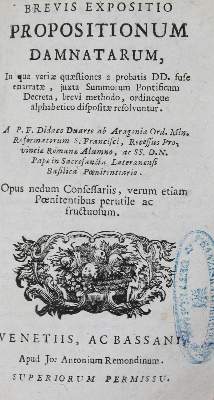 BREVIS EXPOSITIO
PROPOSITIONUM
DAMNATARUM,
In qua variæ quæstiones a probatis DD. fuse
enarratæ, juxta Summorum Pontificum
Decreta, brevi methodo, ordineque
alphabetico dispositæ resolvuntur.
A P. F. Didaco Duarte ab Aragonia Ord. Min.
Reformatorum S. Francisci, Recessus Pro-
vinciæ Romanæ Alumno, ac SS. D. N.
Papæ in Sacrosancta Lateranensi
Basilica Pœnitentiario.
Opus nedum Confessariis, verum etiam
Pœnitentibus perutile ac
fructuosum.
VENETIIS, AC BASSANI
Apud Jo: Antonium Remondinum.
SUPERIORUM PERMISSU.